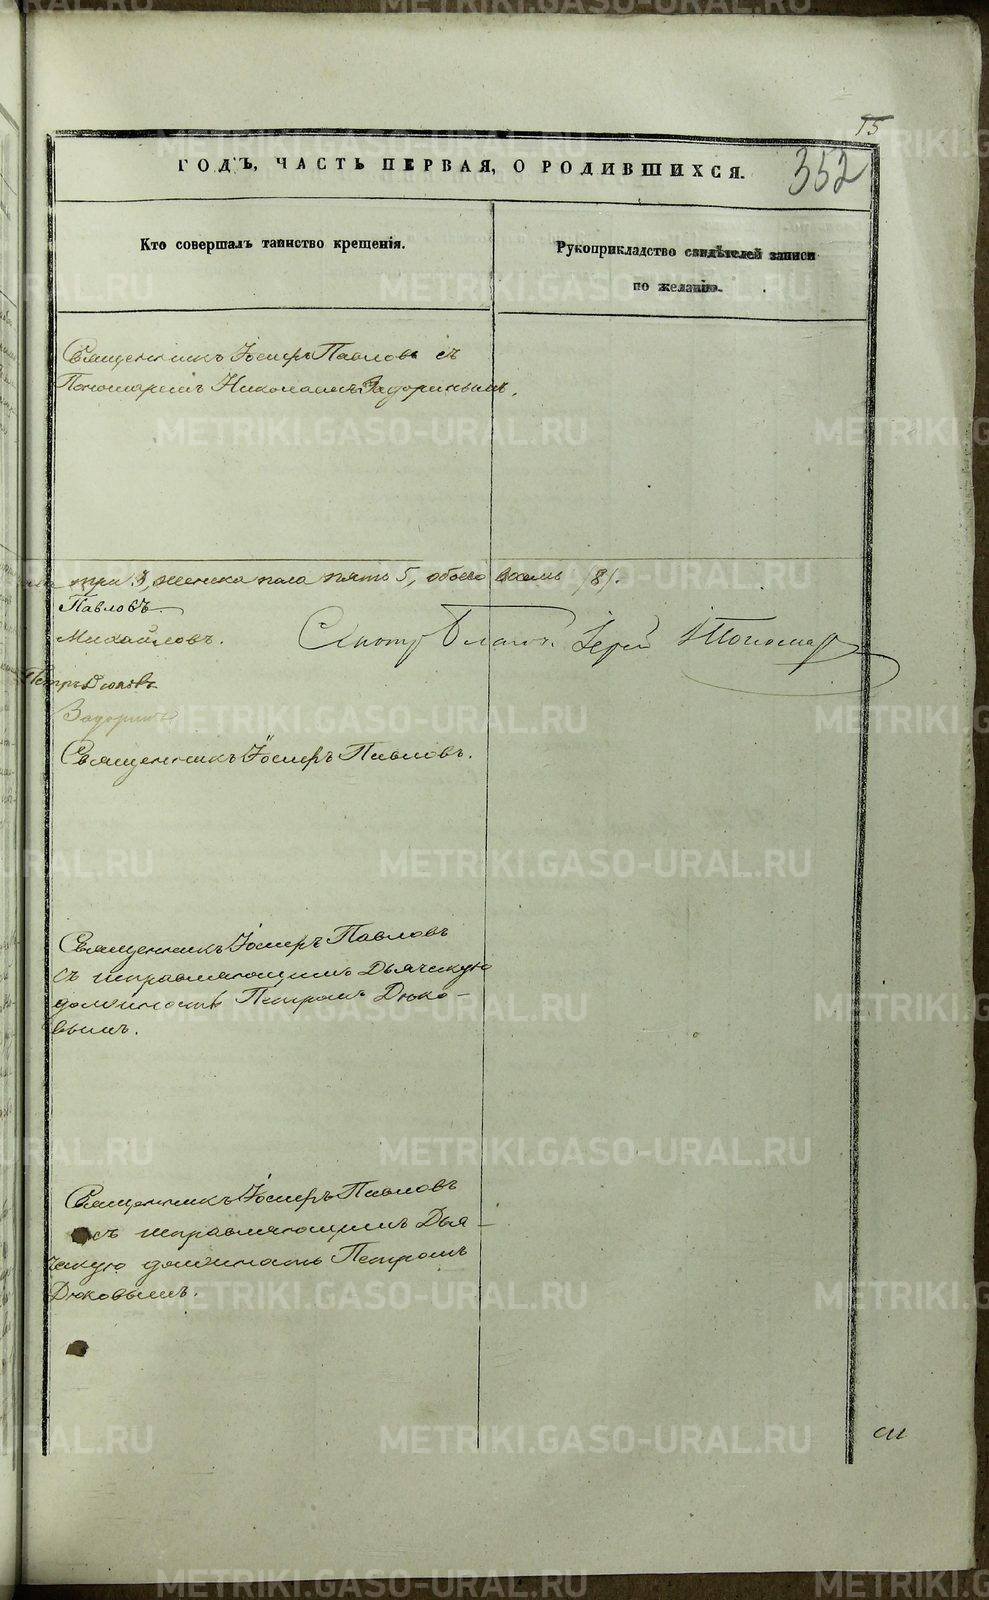 15
352
ГОДЪ, ЧАСТЬ ПЕРВАЯ, О РОДИВШИХСЯ.
Кто совершалъ таинство крещенія.
Рукоприкладство свидѣтелей записи
по желанію.
Священникъ Іосифъ Павловъ съ
Пономаремъ Николаемъ Задоринымъ.
три 3, женска пола пять 5, обоего восемь /8/.
Павловъ.
Михайловъ.
Петръ Дюковъ
Задоринъ
Священникъ Іосифъ Павловъ.
Священникъ Іосифъ Павловъ
съ исправляющимъ Дьяческую
должность Петромъ Дюко-
вымъ.
Священникъ Іосифъ Павловъ
съ исправляющимъ Дья-
ческую должность Петромъ
Дюковымъ.
METRIKI.GASO-URAL.RU